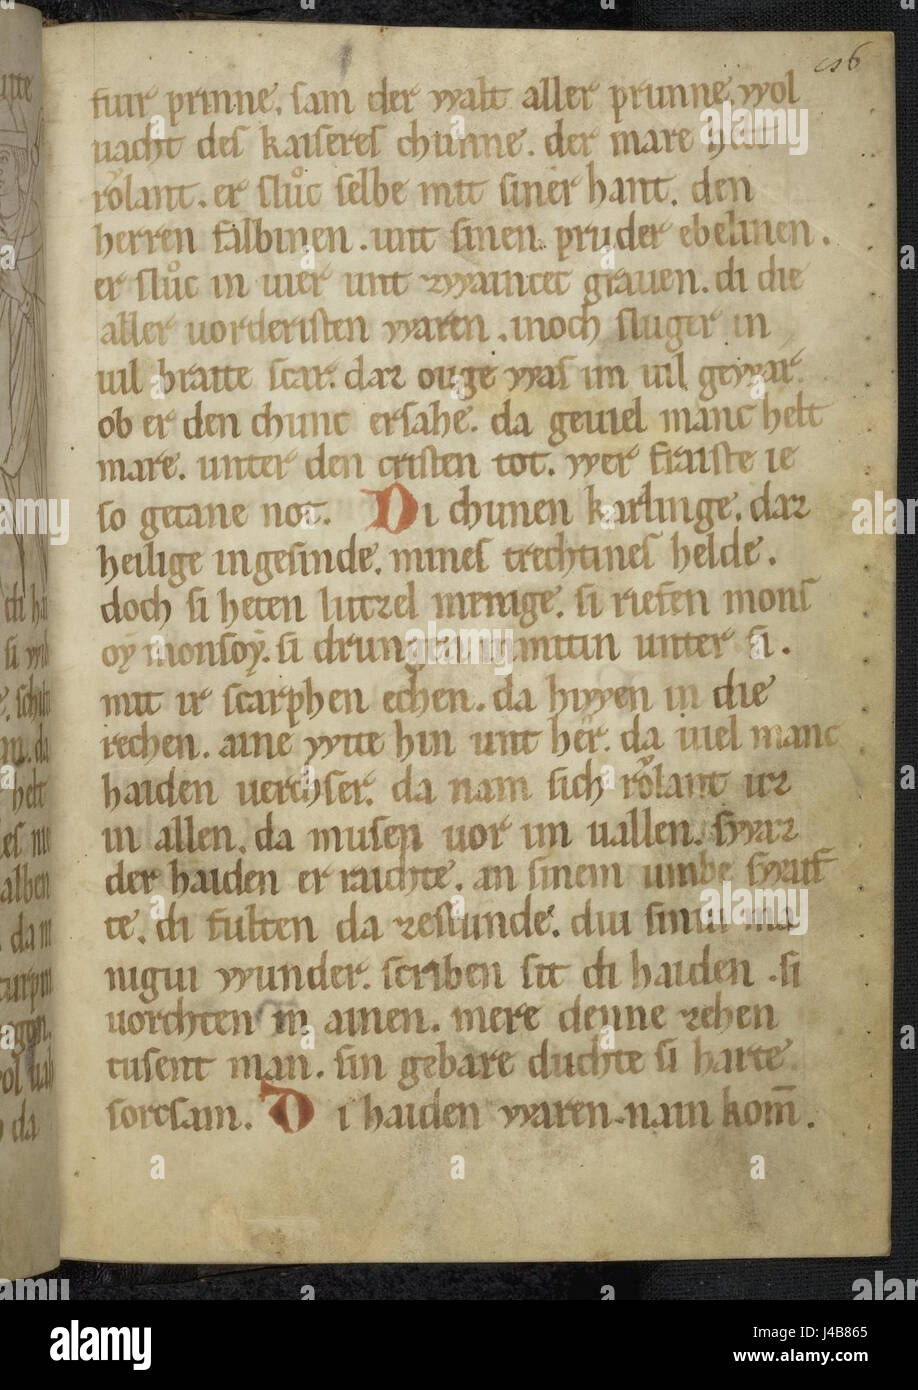 fuir prinne, sam der walt aller prunne. wol
uacht des kaiseres chunne. der mare helt
rͦolant. er ſlůc ſelbe mit ſiner hant. den
herren falbinen. unt ſinen pruder ebelinen.
er ſlůc in uier unt zwaincec grauen. di die
aller uorderiſten waren. inoch ſluger in
uil braite ſcar. daz ouge was im uil gewar.
ob er den chunc erſahe. da geuiel manc helt
mare. unter den criſten tot. wer fraiſte ie
ſo getane not. Di chunen karlinge. daz
heilige ingeſinde. mines trechtines helde.
doch ſi heten lutzel menige. ſi riefen monſ
oy monſoy. ſi drungen inmittin unter ſi.
mit ir ſcarphen echen. da hiwen in die
rechen. aine wite hin unt her. da uiel manc
haiden uerchſer. da nam ſich rͦolant uz
in allen. da muſen uor im uallen. ſwaz
der haiden er raichte. an ſinem umbe ſwaif
te. di fulten da zeſtunde. diu ſiniu ma
nigiu wunder. ſcriben ſit di haiden. ſi
uorchten in ainen. mere denne zehen
tuſent man. ſin gebare duchte ſi harte
ſorcſam. Di haiden waren nain kom̄.
alamy
Image ID: J4B865
www.alamy.com